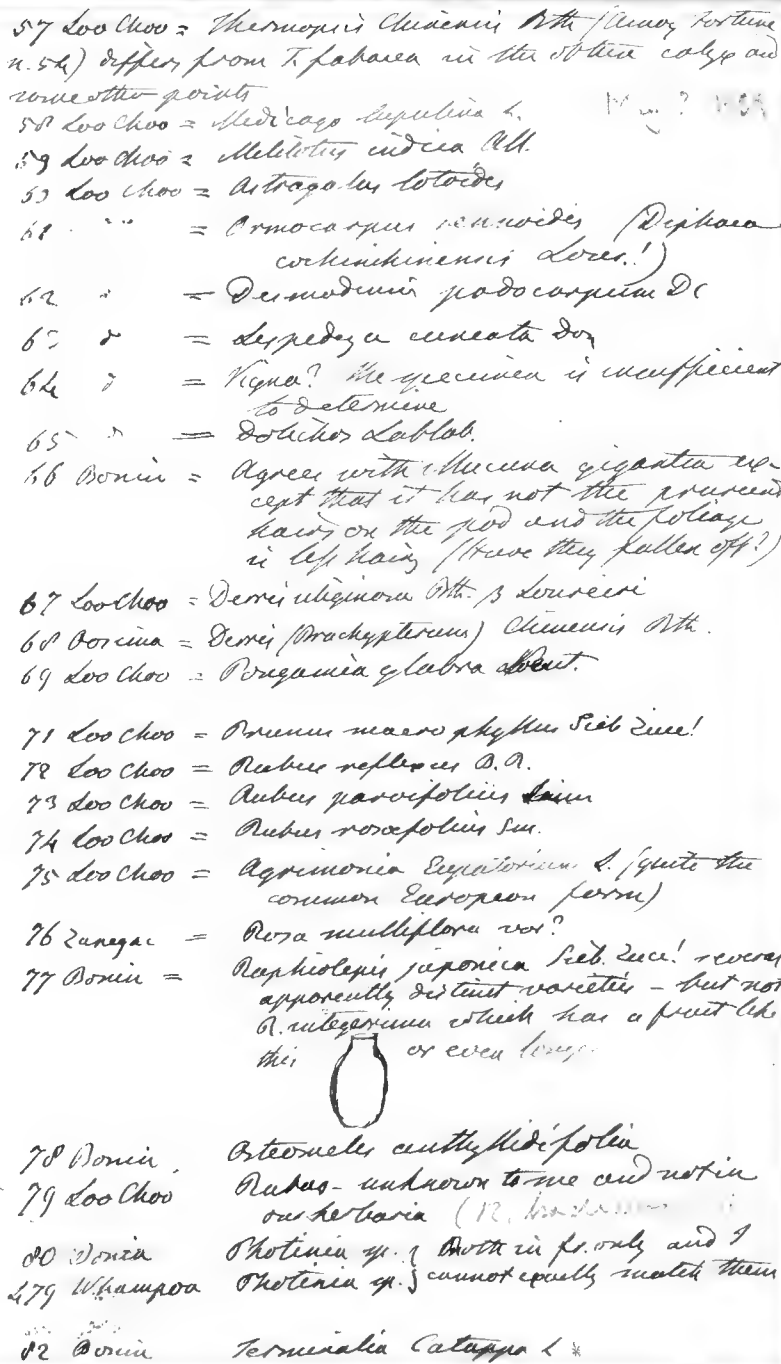 57 Loo Choo = Thermopsis Chinensis Bth (Amoy Fortune
n. 54) differs from T. fabacea in the obtuse calyx and
some other points
58 Loo Choo = Medicago lupulina L.
59 Loo Choo = Melilotus indica All.
Loo Choo = Astragalus lotoides
61 " = Ormocarpus sennoides (Diphaca
cochinchinensis Lour.!)
62 " = Desmodium podocarpum DC
63 " = Lespedeza cuneata Don
64 " = Vigna? the specimen is insufficient
to determine
65 " = Dolichos Lablab.
66 Bonin = Agrees with Mucuna gigantea ex-
cept that it has not the prurient
hairs on the pod and the foliage
is less hairy (Have they fallen off?)
67 Loo Choo = Derris uliginosa Bth. β Loureiri
68 Oosima = Derris (Brachypterum) Chinensis Bth.
69 Loo Choo = Pongamia glabra Vent.
71 Loo Choo = Prunus macrophyllus Sieb Zucc!
72 Loo Choo = Rubus reflexus B.R.
73 Loo Choo = Rubus parvifolius Linn
74 Loo Choo = Rubus rosaefolius Sm.
75 Loo Choo = Agrimonia Eupatorium L. (quite the
common European form)
76 = Rosa multiflora var?
77 Bonin = Raphiolepis japonica Sieb. Zucc! several
apparently distinct varieties – but not
R. integerrima which has a fruit like
this or even longer
78 Bonin Osteomeles anthyllidifolia
79 Loo Choo Rubus – unknown to me and not in
our herbaria (R.
80 Bonin Photinia sp. } Both in fr. only and I
479 Whampoa Photinia sp. } cannot exactly match them
82 Bonin Terminalia Catappa L *